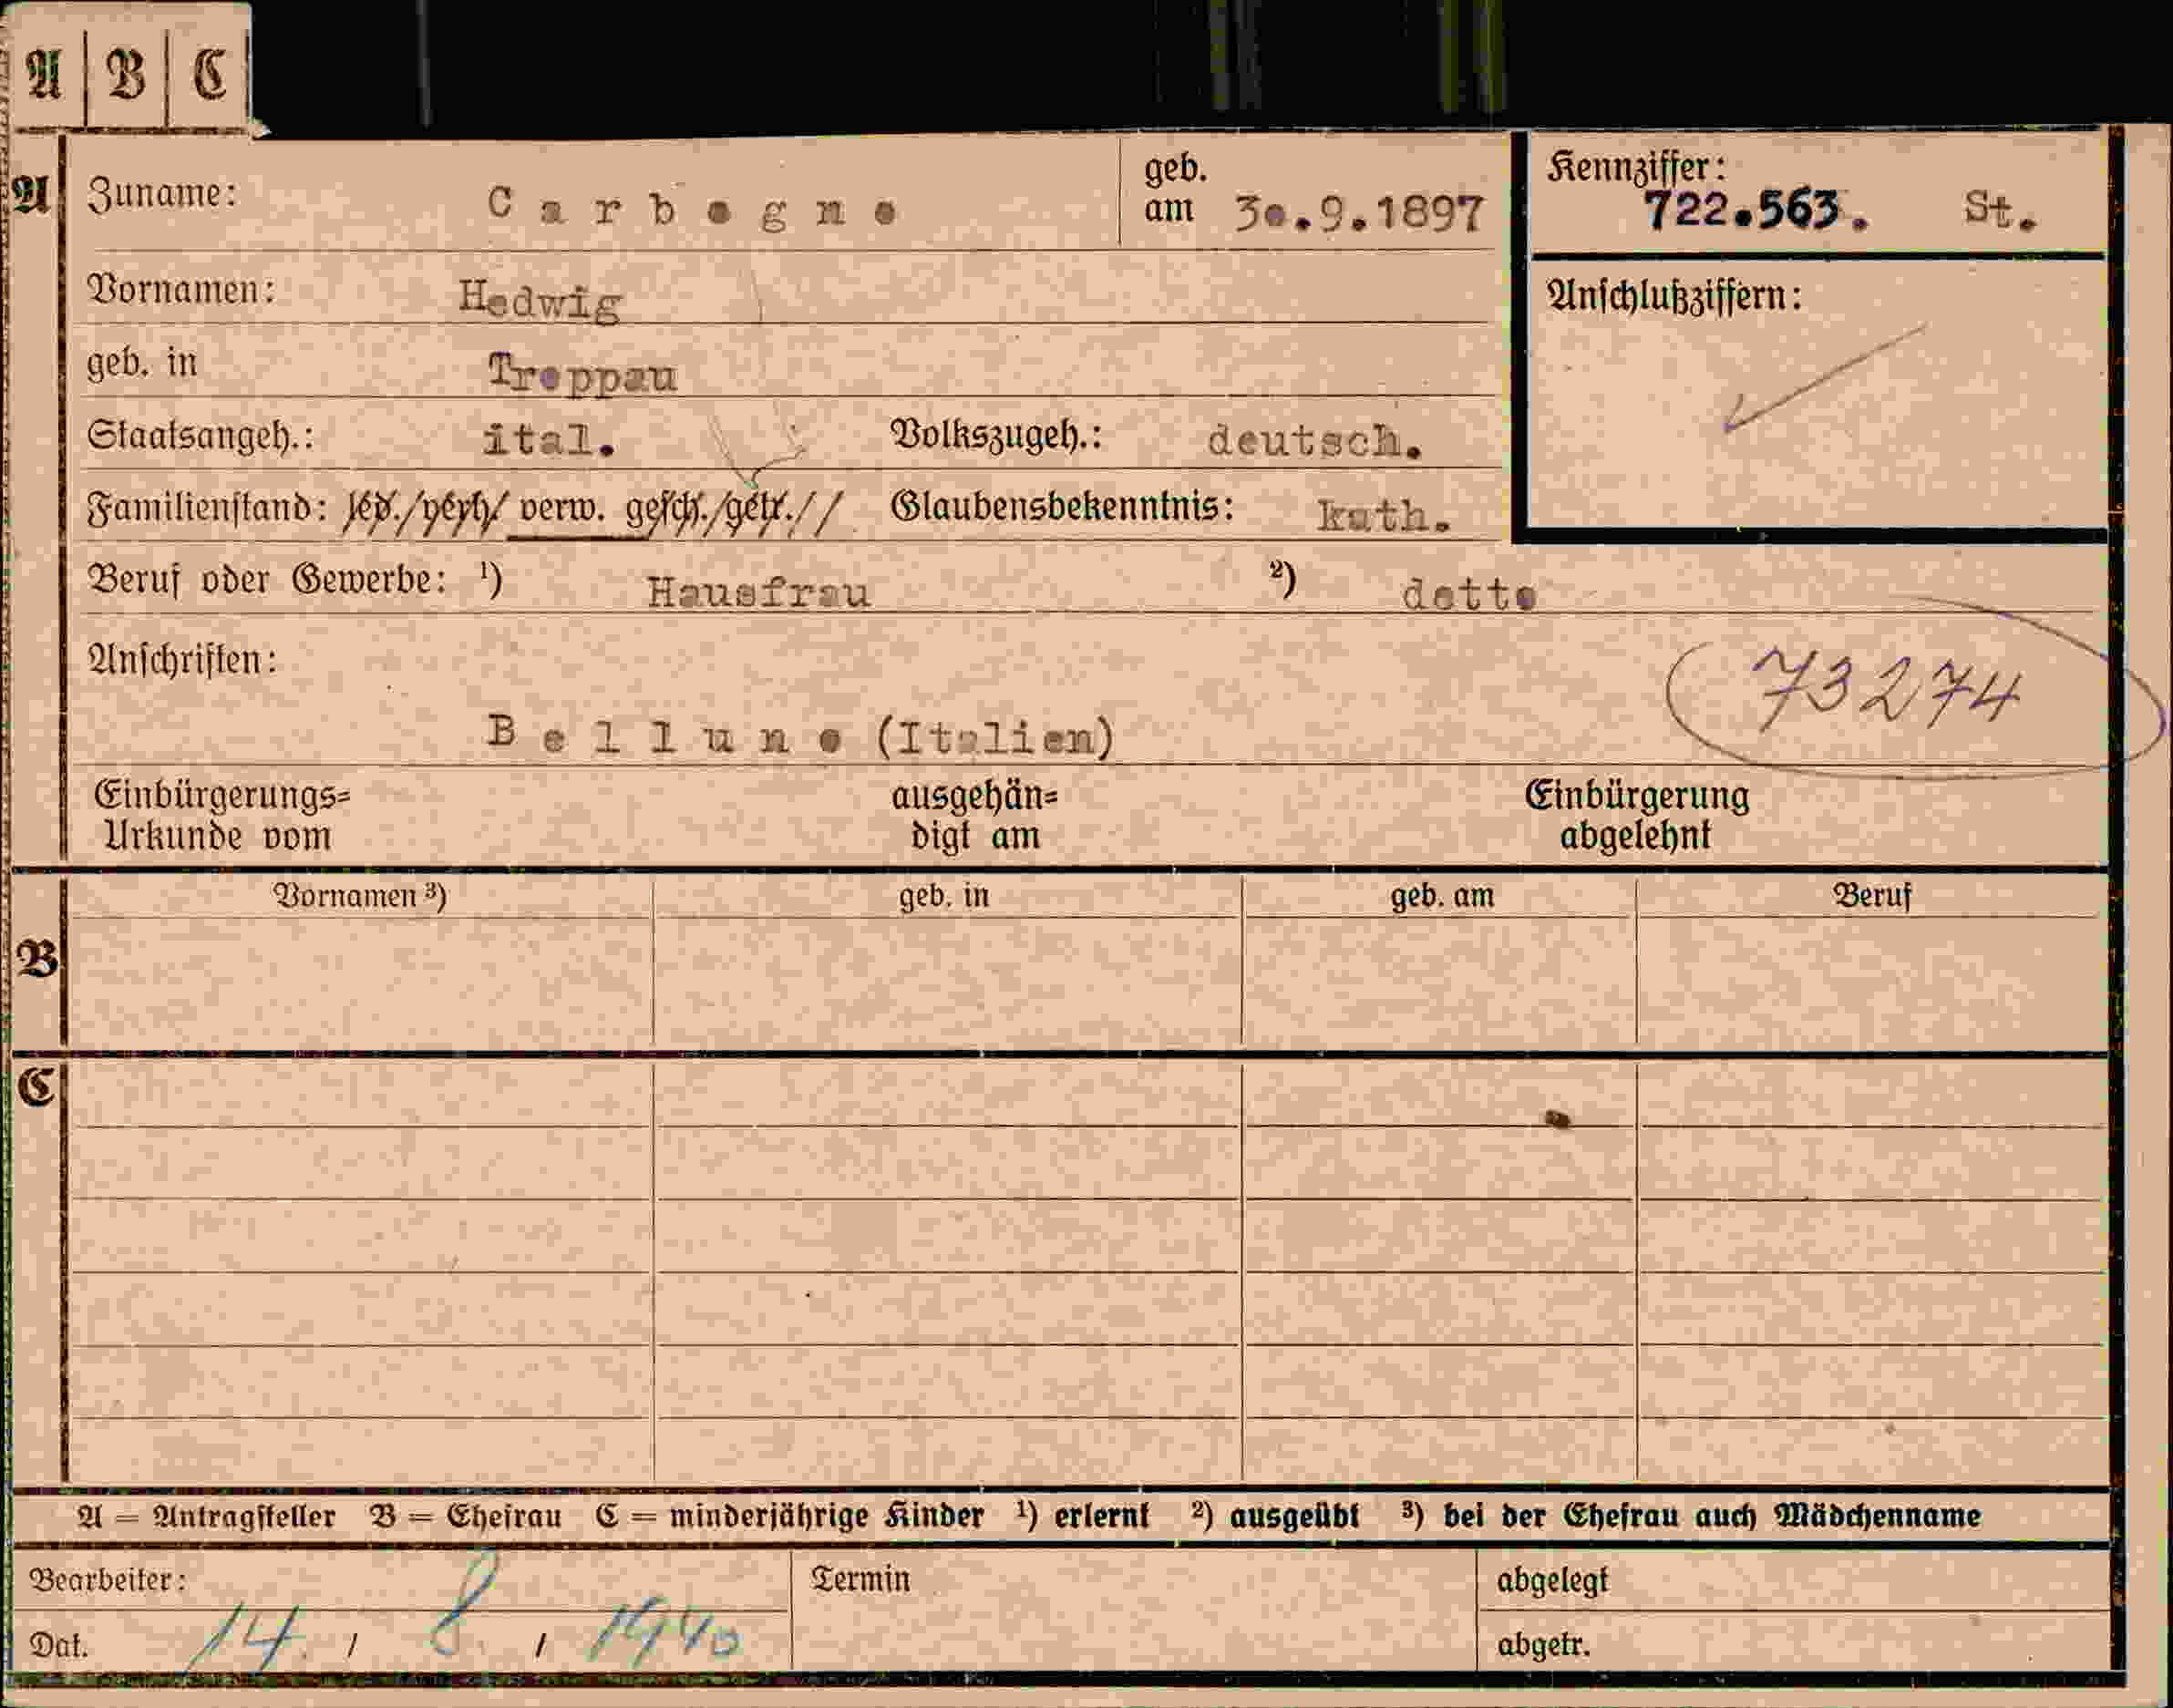 A | B | C
A
Zuname: Carbogno geb. am 30.9.1897
Kennziffer: 722.563. St.
Vornamen: Hedwig
Anschlußziffern:
geb. in Troppau
Staatsangeh.: ital. Volkszugeh.: deutsch.
Familienstand: led./verh/ verw. gesch./getr.// Glaubensbekenntnis: kath.
Beruf oder Gewerbe: ¹) Hausfrau ²) detto
Anschriften:
73274
Belluno (Italien)
Einbürgerungs= ausgehän= Einbürgerung
Urkunde vom digt am abgelehnt
Vornamen ³) geb. in geb. am Beruf
B
C
A = Antragsteller B = Ehefrau C = minderjährige Kinder ¹) erlernt ²) ausgeübt ³) bei der Ehefrau auch Mädchenname
Bearbeiter: Termin abgelegt
Dat. 14. / 8. / 1940 abgetr.